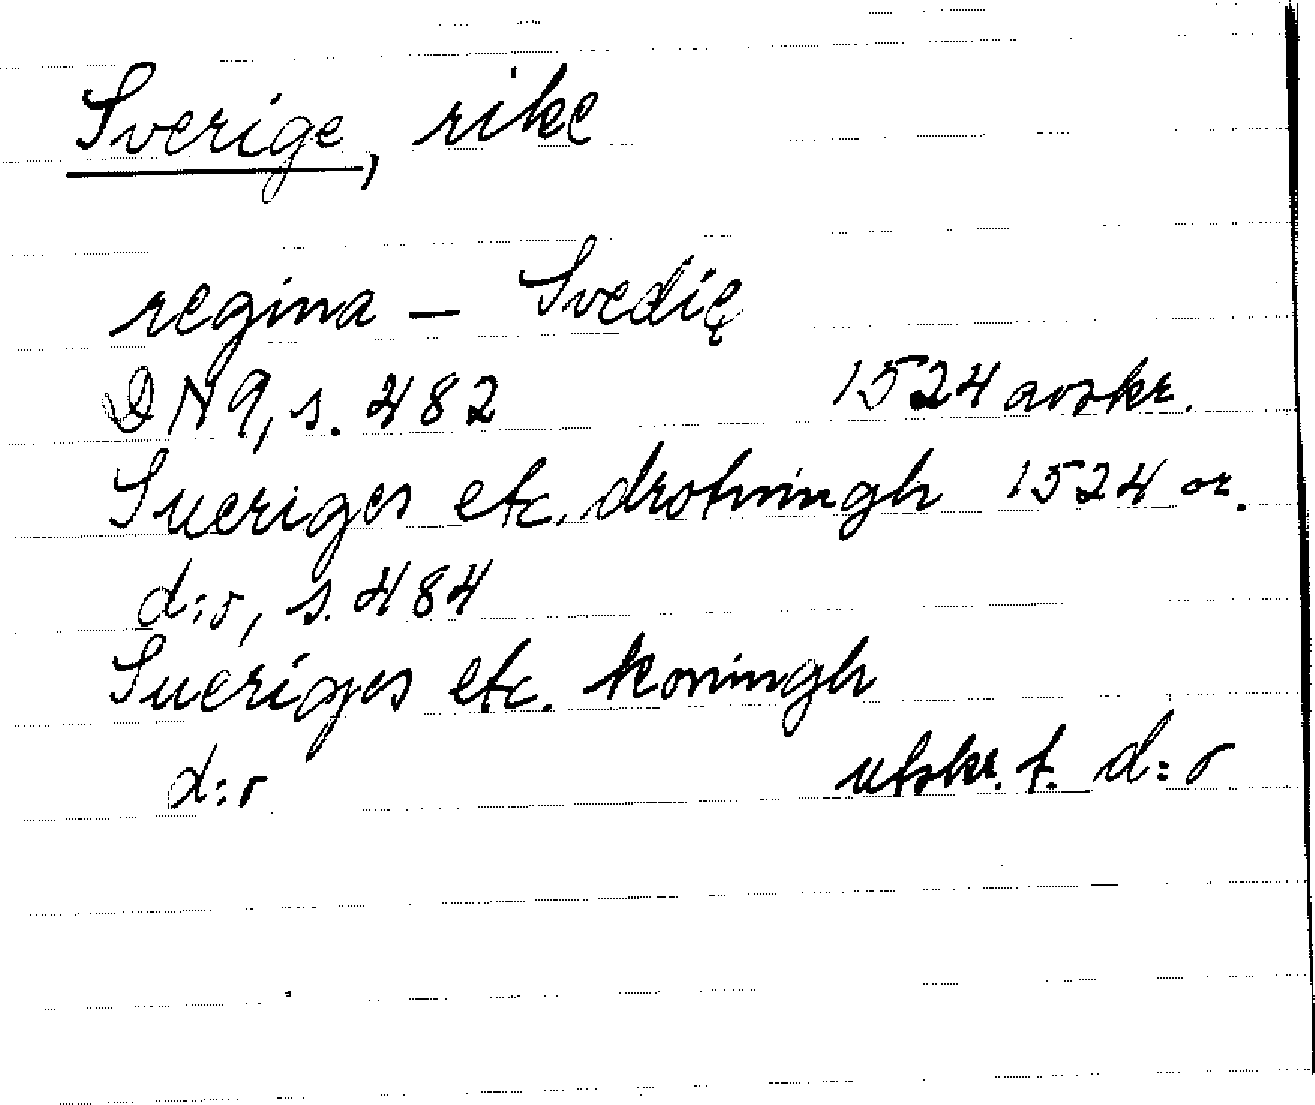 Sverige, rike
regina — Svedię
DN 9, s. 482 1524 avskr.
Sueriges etc. drotningh 1524 or.
d:o, s. 484
Sueriges etc. koningh
d:o utskr. f. d:o